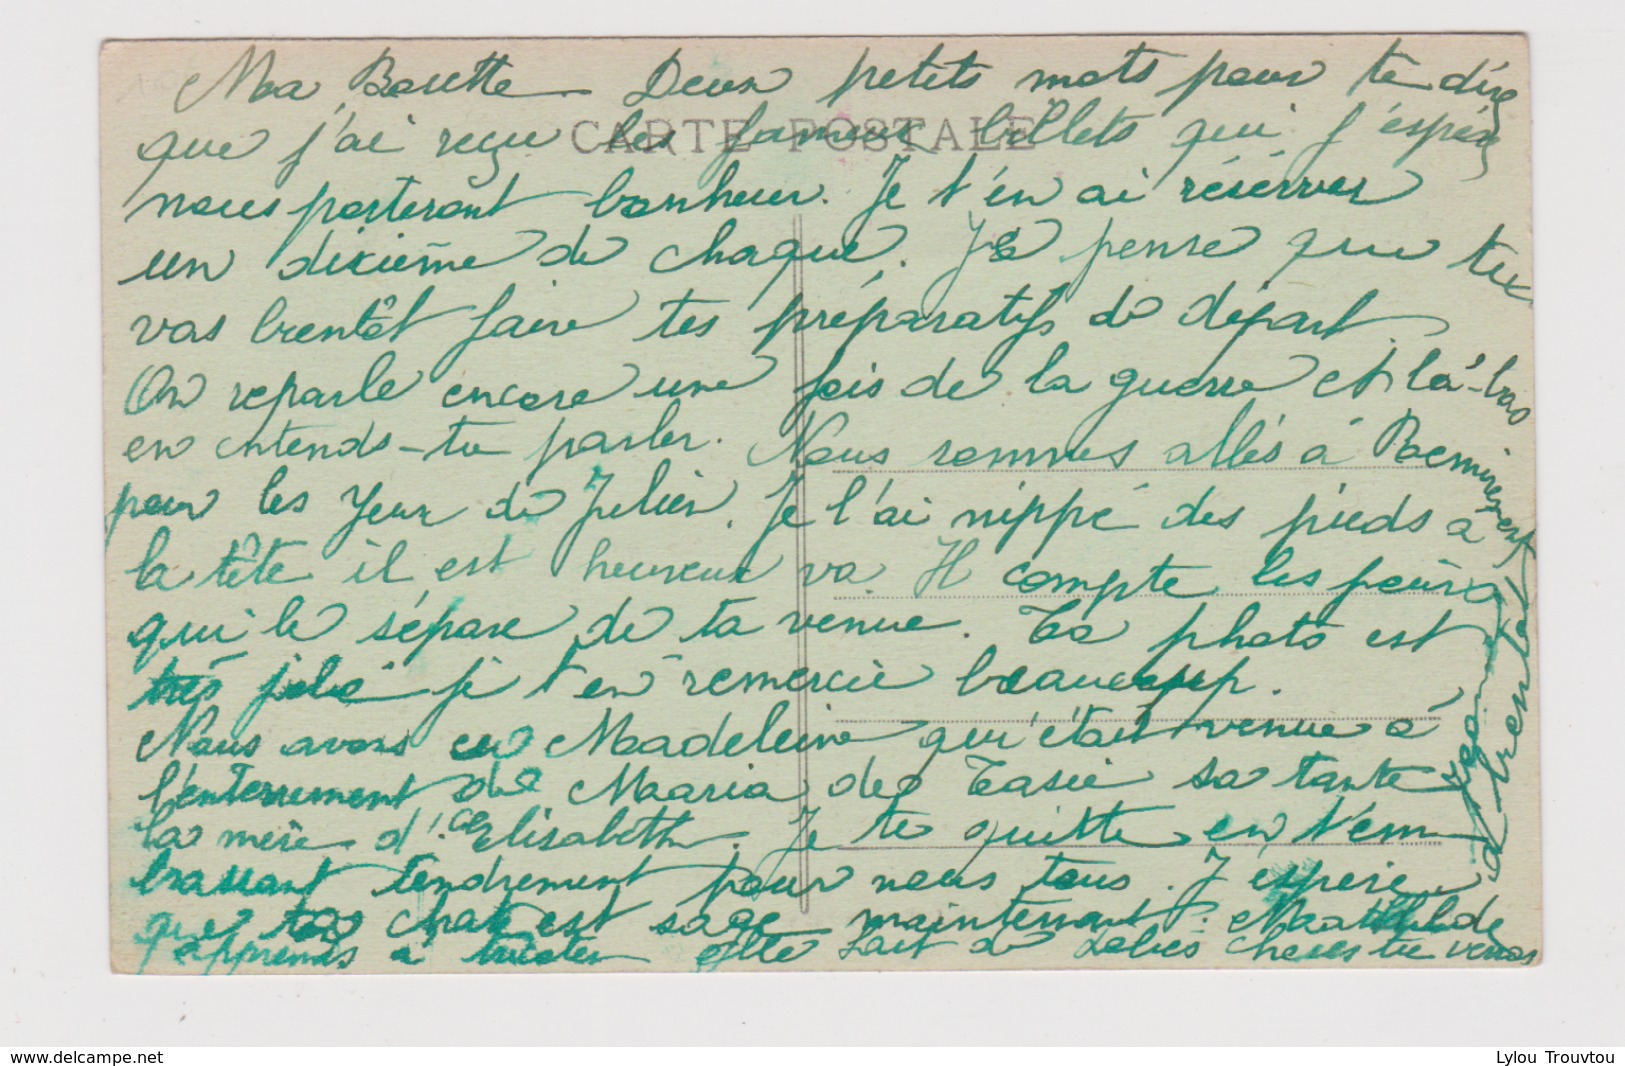 Ma Bosette Deux petits mots pour te dire
CARTE POSTALE
que j'ai reçu les fameux billets qui j'espère
nous porteront bonheur. Je t'en ai réserver
un dixième de chaque. Je pense que tu
vas bientôt faire tes préparatifs de départ.
On reparle encore une fois de la guerre et là-bas
en entends-tu parler. Nous sommes allés à
pour les yeux de Julien. Je l'ai nippé des pieds à
la tête il est heureux va. Il compte les jours
qui le sépare de ta venue. Ta photo est
très jolie je t'en remercie beaucoup.
Nous avons eu Madeleine qui était venue à
l'enterrement de Maria de Tasie sa tante
la mère d' Elisabeth. Je te quitte en t'em
brassant tendrement pour nous tous. J'espère
que ton chat est sage maintenant. Mathilde
apprends à elle fait de chèses tu verras
delcampe.net
Lylou Trouvtou